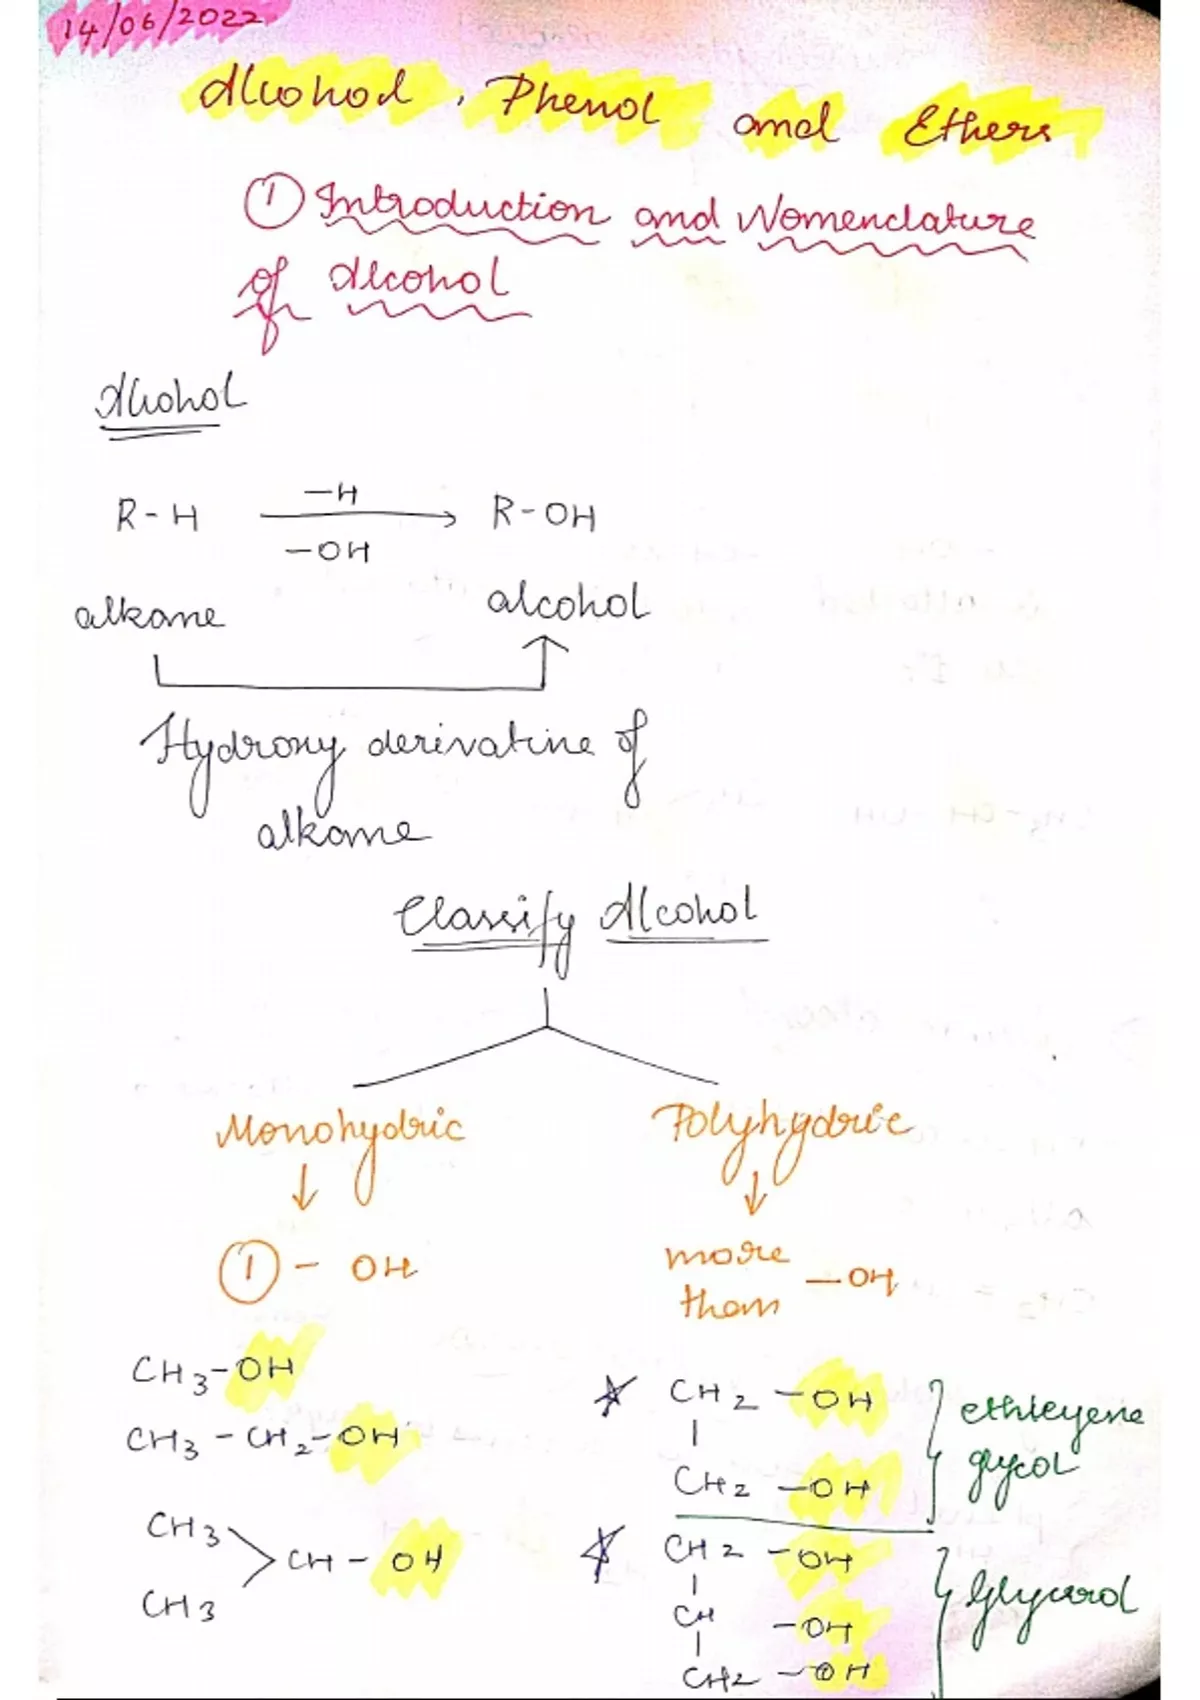 14/06/2022
Alcohol, Phenol and Ethers
① Introduction and Nomenclature
of Alcohol
Alcohol
R-H —H —OH R-OH
alkane alcohol
Hydroxy derivative of
alkane
Classify Alcohol
Monohydric Polyhydric
① - OH more than —OH
CH3-OH
CH3-CH2-OH
CH3
CH3
CH-OH
CH2-OH
CH2-OH
ethleyene
glycol
CH2-OH
CH-OH
CH2-OH
Glycerol